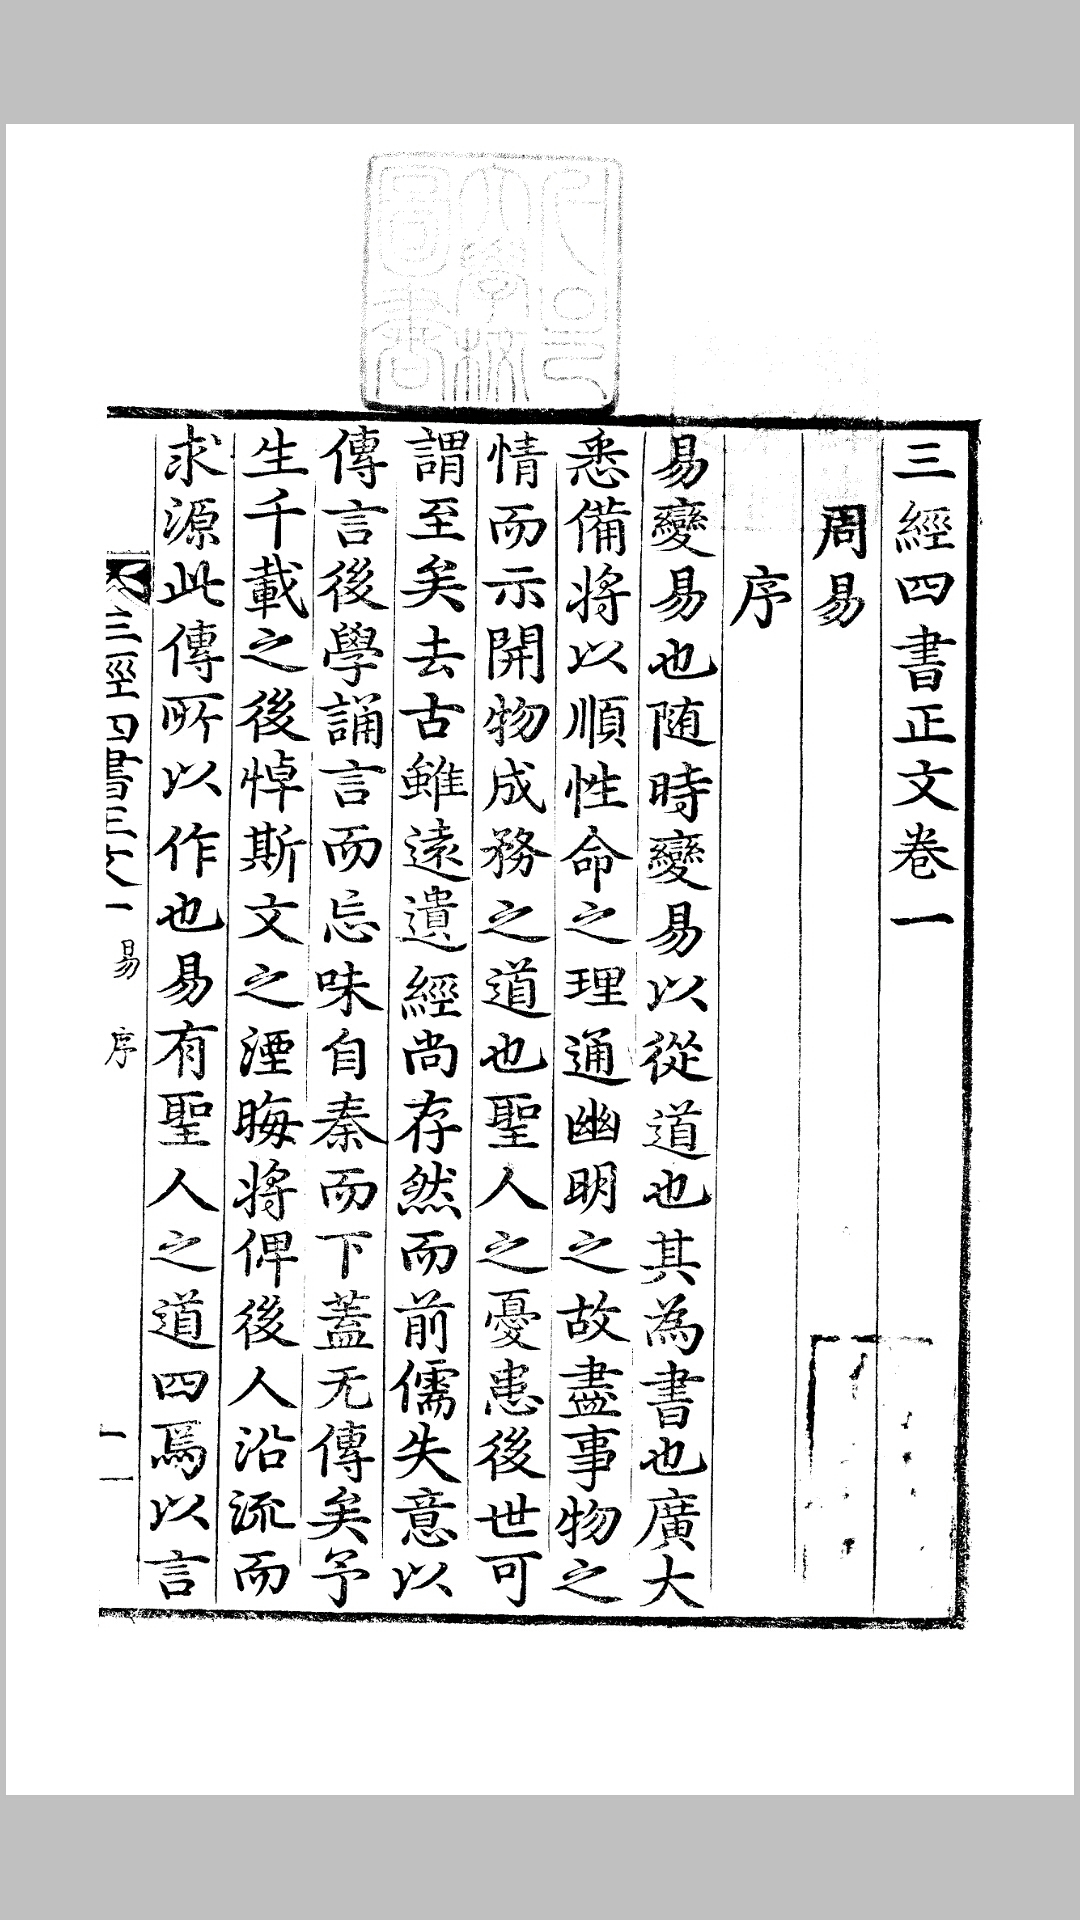 三經四書正文卷一
周易
序
易變易也随時變易以從道也其為書也廣大
悉備將以順性命之理通幽明之故盡事物之
情而示開物成務之道也聖人之憂患後世可
謂至矣去古雖遠遺經尚存然而前儒失意以
傳言後學誦言而忘味自秦而下蓋无傳矣予
生千載之後悼斯文之湮晦將俾後人沿流而
求源此傳所以作也易有聖人之道四焉以言
三經四書正文一
易
序
一
大學校
圖書